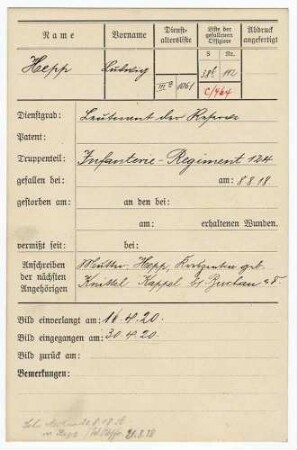 Name
Vorname
Dienst-
altersliste
Liste der
gefallenen
Offiziere
Abdruck
angefertigt
S Nr.
Hepp
Ludwig
1061
112
C/464
Dienstgrad: Leutnant der Reserve
Patent:
Truppenteil: Infanterie-Regiment 124
gefallen bei: am: 8.8.18.
gestorben am: an den bei:
am: erhaltenen Wunden.
vermißt seit: bei:
Anschreiben Mutter: Hepp,
der nächsten
Angehörigen Knittel Kappel
Bild einverlangt am: 16.4.20.
Bild eingegangen am: 30.4.20.
Bild zurück am:
Bemerkungen: